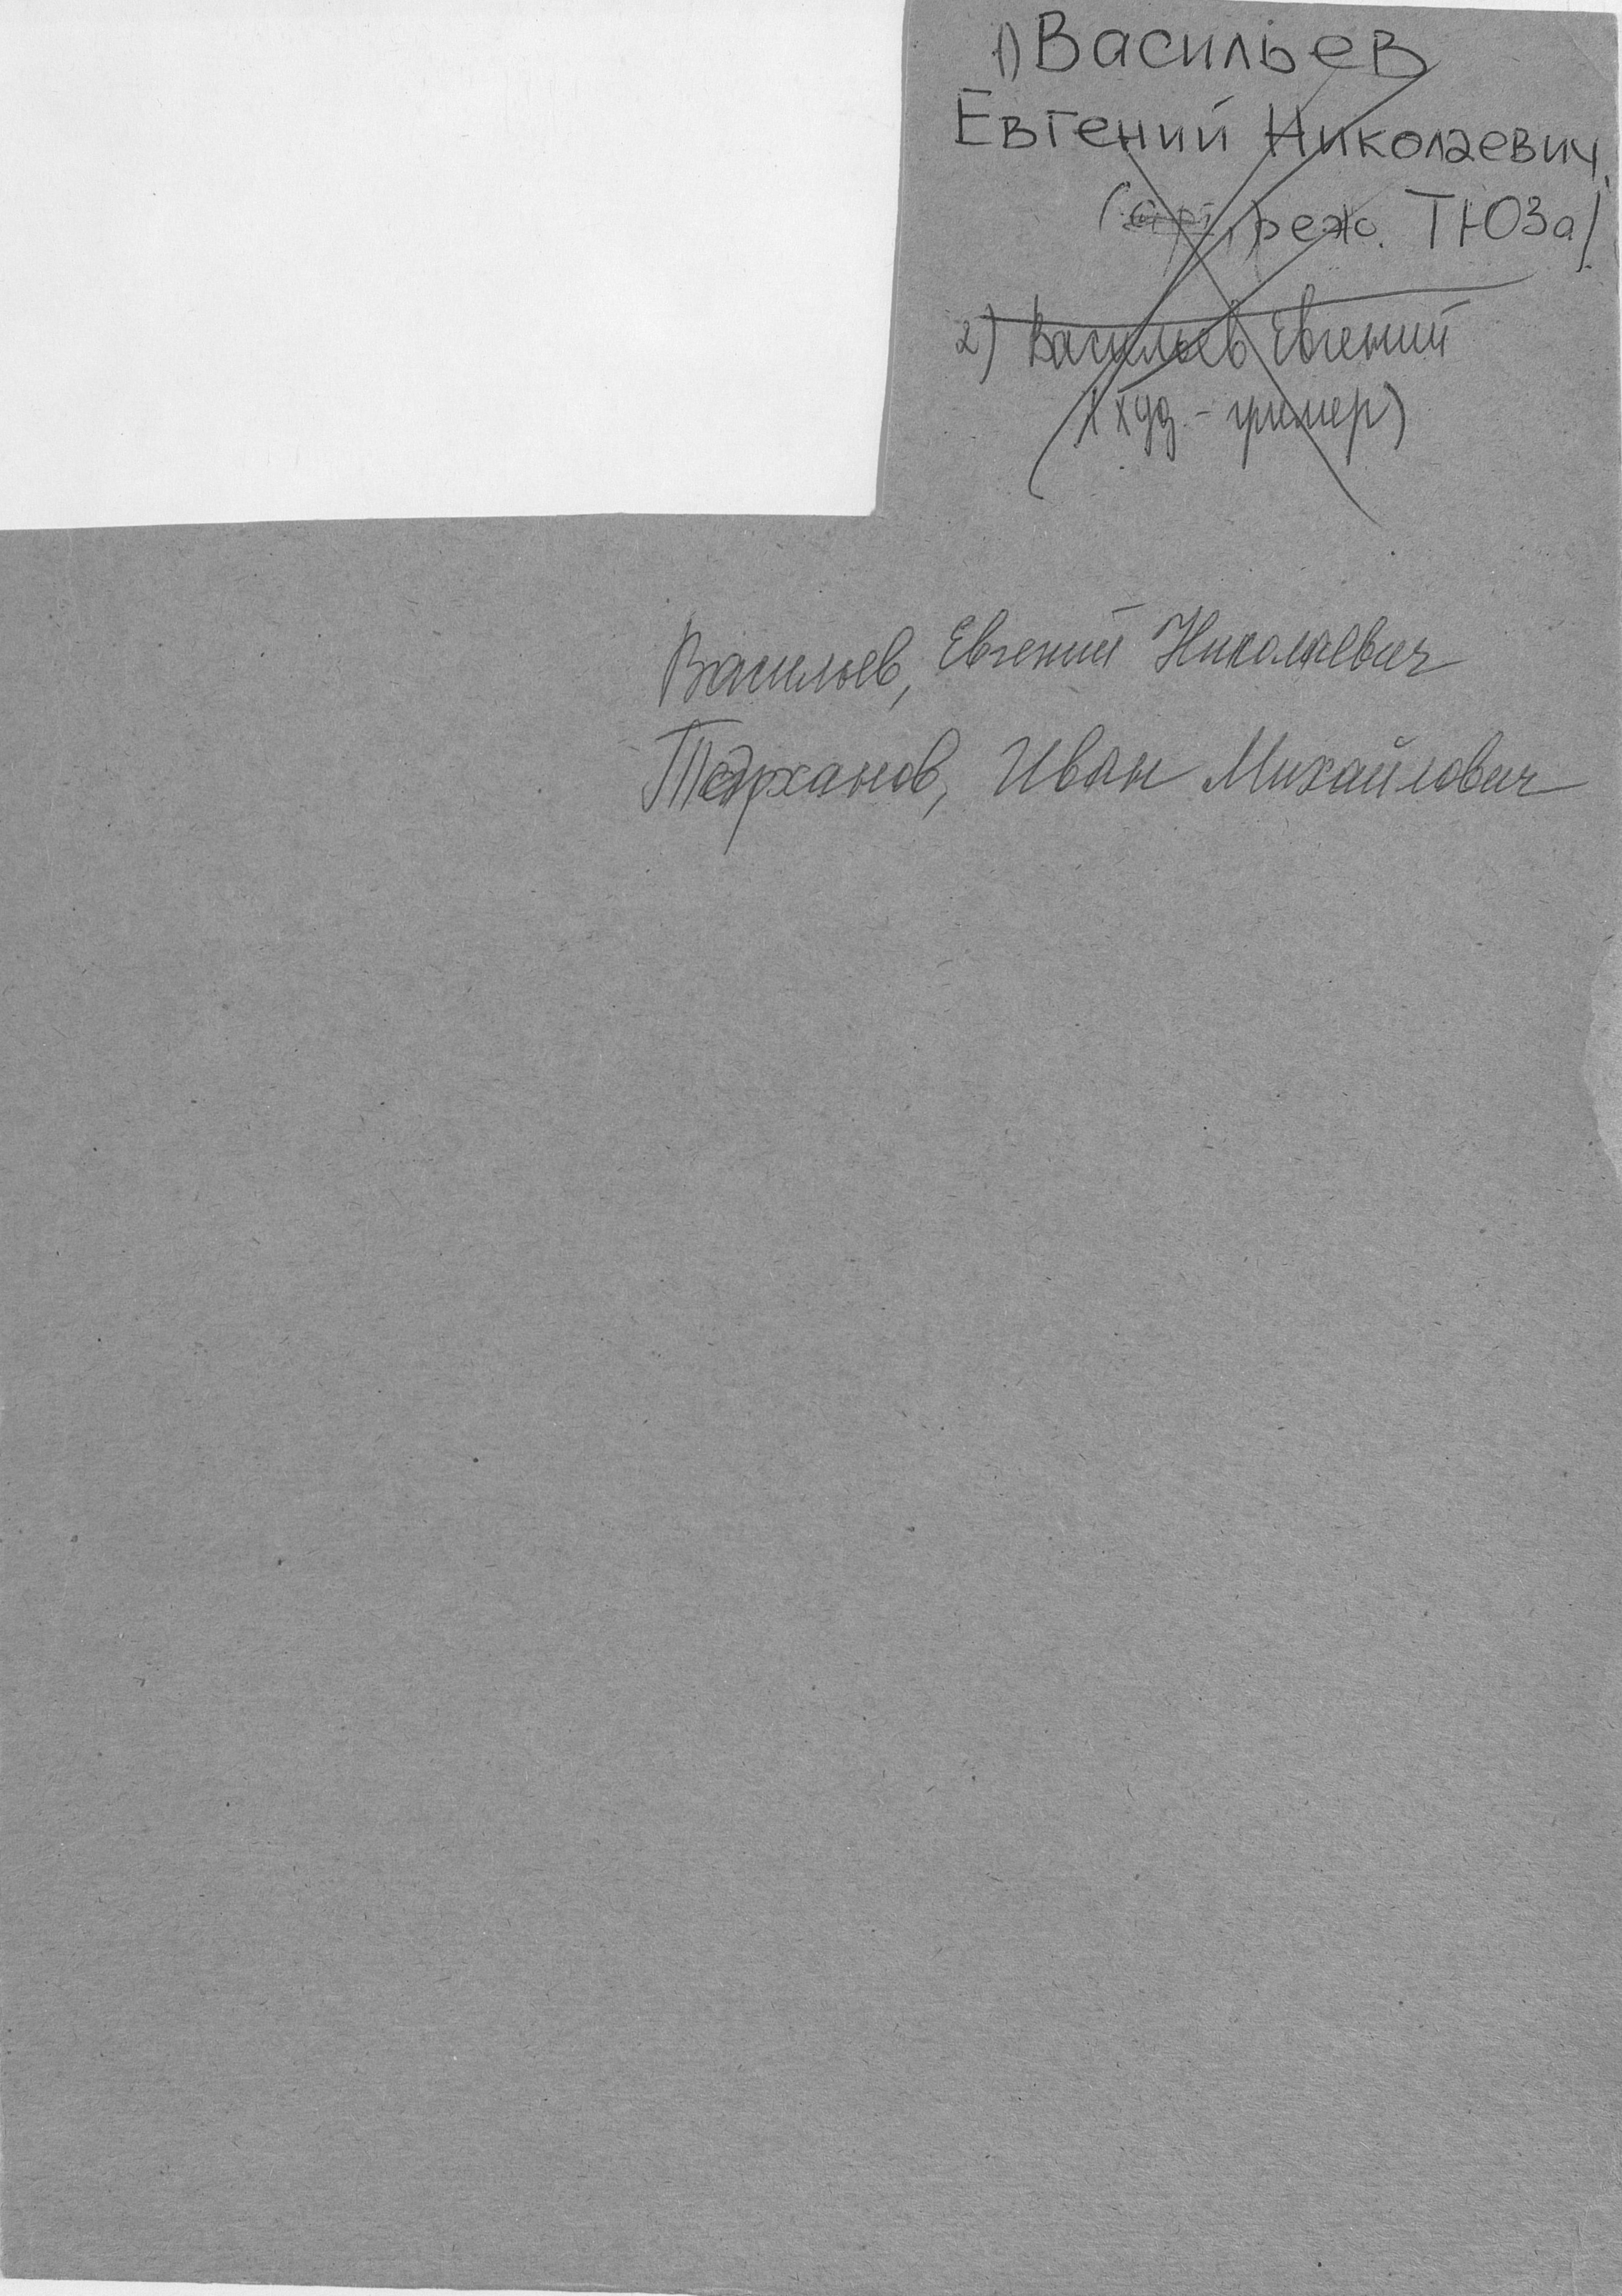 1) Васильев
Евгений Николаевич
реж. ТЮЗа)
2) Васильев Евгений
(худ - гример)
Васильев, Евгений Николаевич
Тарханов, Иван Михайлович